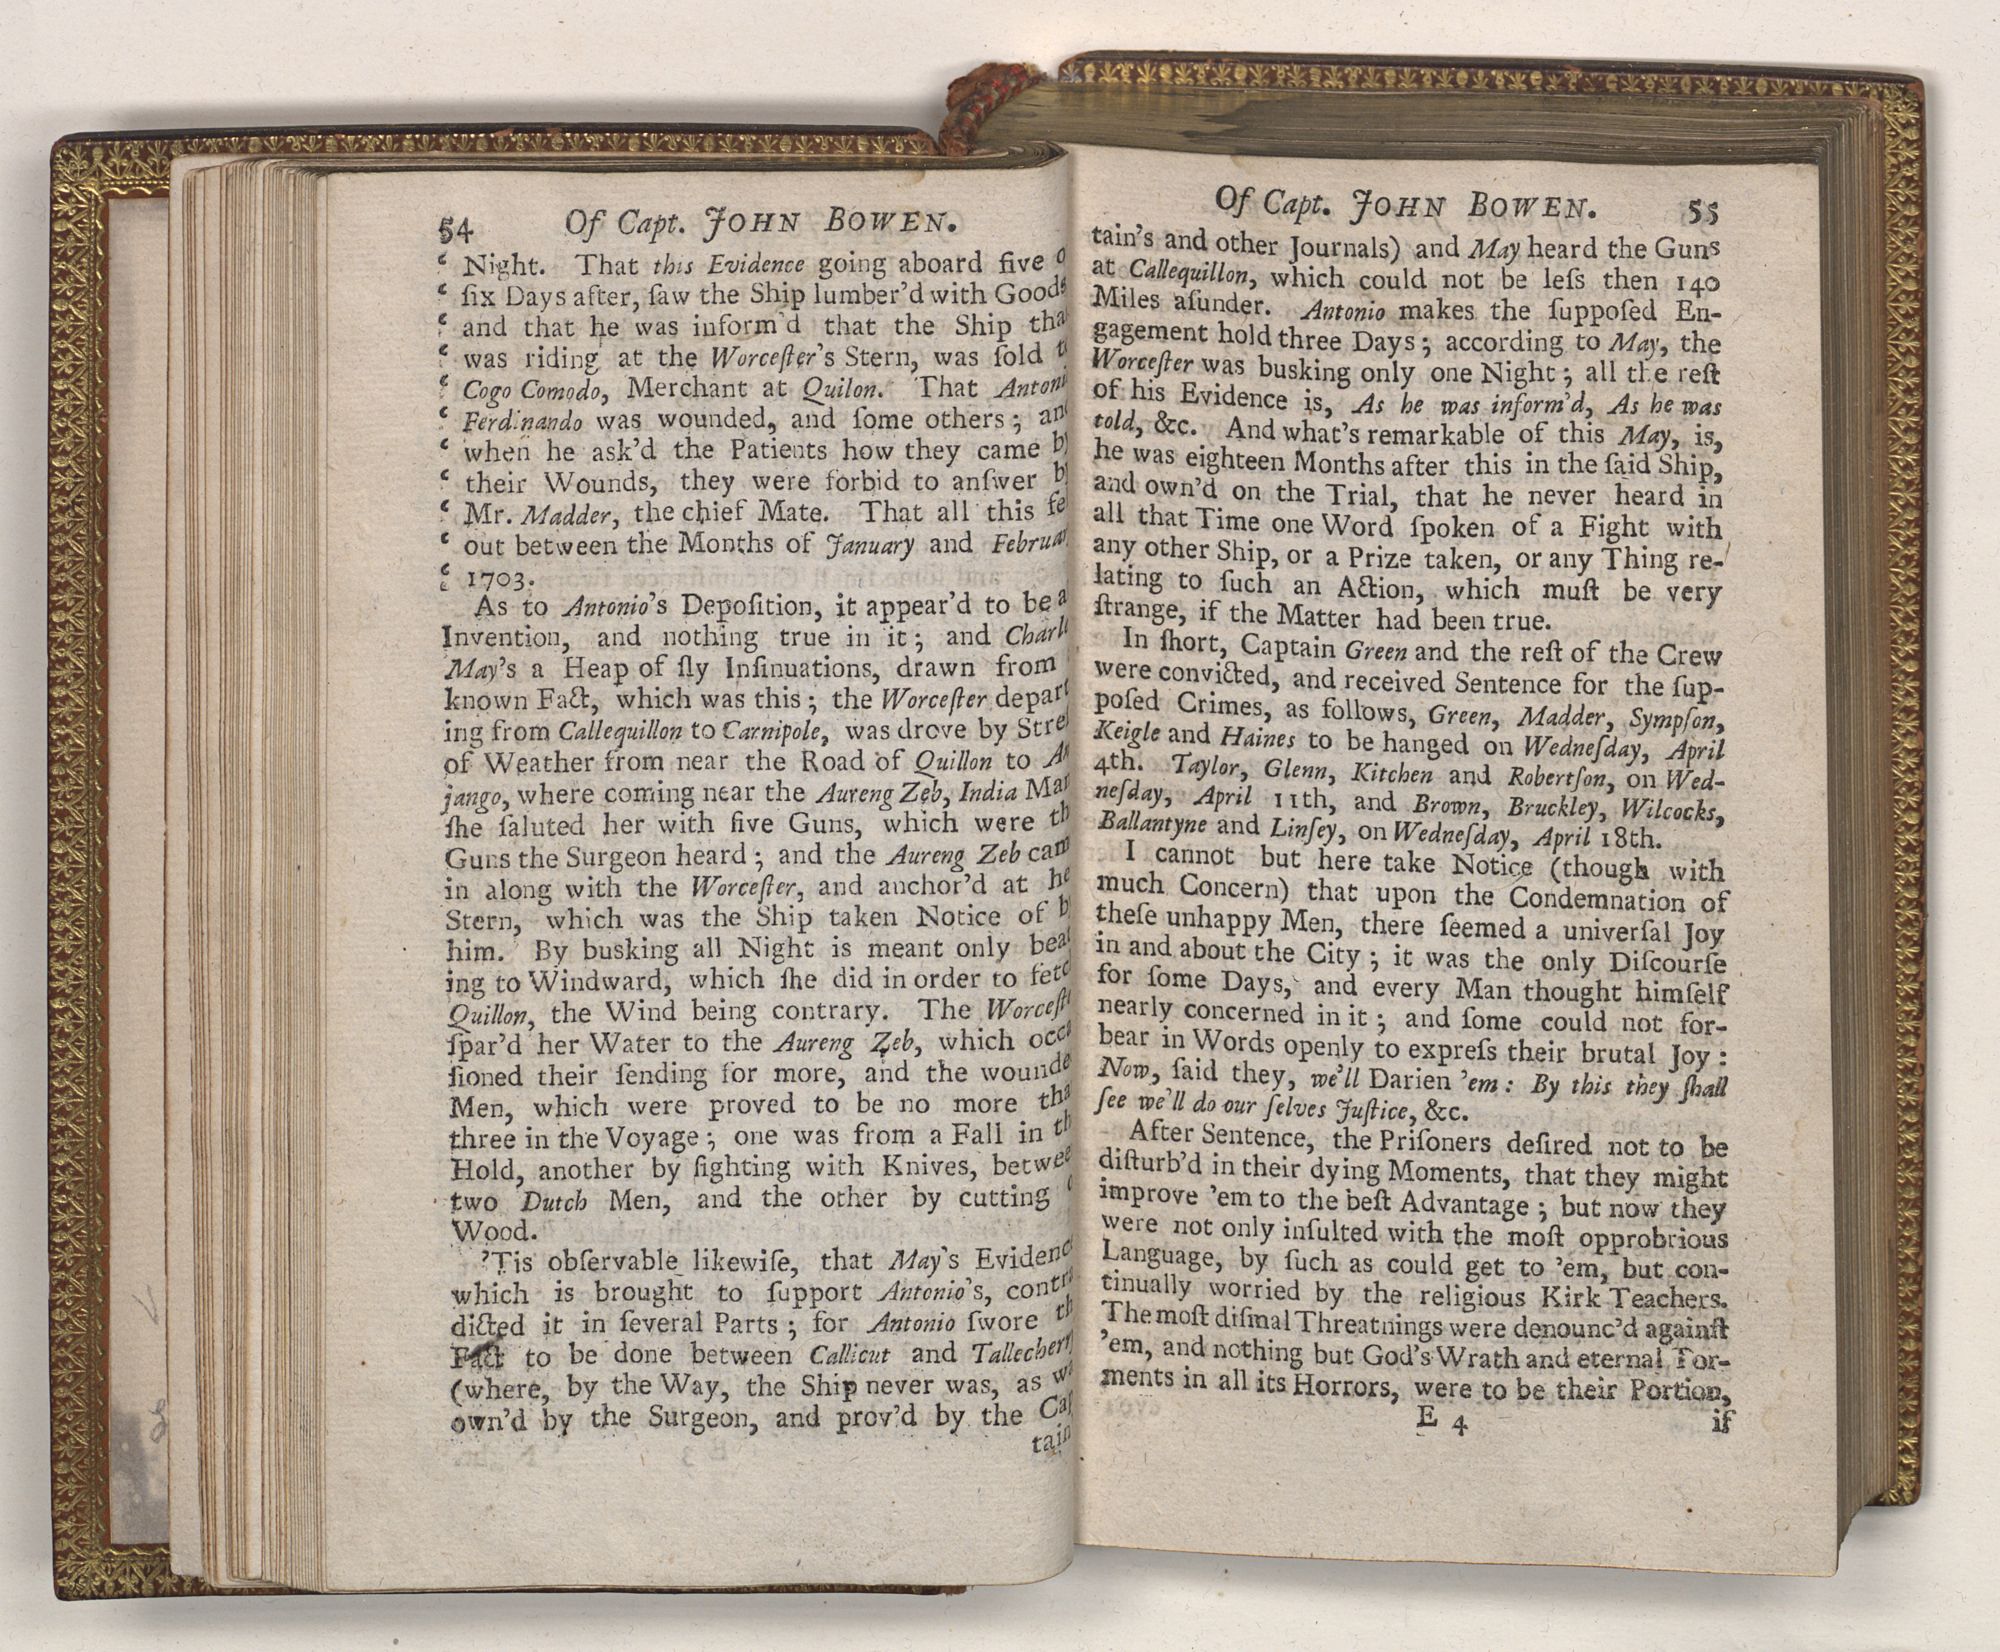 54 Of Capt. JOHN BOWEN.
‘ Night. That this Evidence going aboard five o
‘ ſix Days after, ſaw the Ship lumber'd with Goods
‘ and that he was inform'd that the Ship tha
‘ was riding at the Worceſter's Stern, was ſold t
‘ Cogo Comodo, Merchant at Quilon. That Antoni
‘ Ferdinando was wounded, and ſome others; an
‘ when he ask'd the Patients how they came b
‘ their Wounds, they were forbid to anſwer b
‘ Mr. Madder, the chief Mate. That all this fe
‘ out between the Months of January and Februar
‘ 1703.
As to Antonio's Depoſition, it appear'd to be a
Invention, and nothing true in it; and Charle
May's a Heap of ſly Inſinuations, drawn from
known Fact, which was this; the Worceſter depart
ing from Callequillon to Carnipole, was drove by Stre
of Weather from near the Road of Quillon to An
jango, where coming near the Aureng Zeb, India Man
ſhe ſaluted her with five Guns, which were th
Guns the Surgeon heard; and the Aureng Zeb cam
in along with the Worceſter, and anchor'd at he
Stern, which was the Ship taken Notice of b
him. By busking all Night is meant only beat
ing to Windward, which ſhe did in order to fetc
Quillon, the Wind being contrary. The Worceſte
ſpar'd her Water to the Aureng Zeb, which occa
ſioned their ſending for more, and the wounde
Men, which were proved to be no more tha
three in the Voyage; one was from a Fall in th
Hold, another by fighting with Knives, betwee
two Dutch Men, and the other by cutting o
Wood.
'Tis obſervable likewiſe, that May's Evidence
which is brought to ſupport Antonio's, contra
dicted it in ſeveral Parts; for Antonio ſwore th
Fact to be done between Callicut and Tallecherry
(where, by the Way, the Ship never was, as wa
own'd by the Surgeon, and prov'd by the Cap
tain
Of Capt. JOHN BOWEN. 55
tain's and other Journals) and May heard the Guns
at Callequillon, which could not be leſs then 140
Miles aſunder. Antonio makes the ſuppoſed En-
gagement hold three Days; according to May, the
Worceſter was busking only one Night; all the reſt
of his Evidence is, As he was inform'd, As he was
told, &c. And what's remarkable of this May, is,
he was eighteen Months after this in the ſaid Ship,
and own'd on the Trial, that he never heard in
all that Time one Word ſpoken of a Fight with
any other Ship, or a Prize taken, or any Thing re-
lating to ſuch an Action, which muſt be very
ſtrange, if the Matter had been true.
In ſhort, Captain Green and the reſt of the Crew
were convicted, and received Sentence for the ſup-
poſed Crimes, as follows, Green, Madder, Sympſon,
Keigle and Haines to be hanged on Wedneſday, April
4th. Taylor, Glenn, Kitchen and Robertſon, on Wed-
neſday, April 11th, and Brown, Bruckley, Wilcocks,
Ballantyne and Linſey, on Wedneſday, April 18th.
I cannot but here take Notice (though with
much Concern) that upon the Condemnation of
theſe unhappy Men, there ſeemed a univerſal Joy
in and about the City; it was the only Diſcourſe
for ſome Days, and every Man thought himſelf
nearly concerned in it; and ſome could not for-
bear in Words openly to expreſs their brutal Joy:
Now, ſaid they, we'll Darien 'em: By this they ſhall
ſee we'll do our ſelves Juſtice, &c.
After Sentence, the Priſoners deſired not to be
diſturb'd in their dying Moments, that they might
improve 'em to the beſt Advantage; but now they
were not only inſulted with the moſt opprobrious
Language, by ſuch as could get to 'em, but con-
tinually worried by the religious Kirk-Teachers.
The moſt diſmal Threatnings were denounc'd againſt
'em, and nothing but God's Wrath and eternal Tor-
ments in all its Horrors, were to be their Portion,
E 4 if